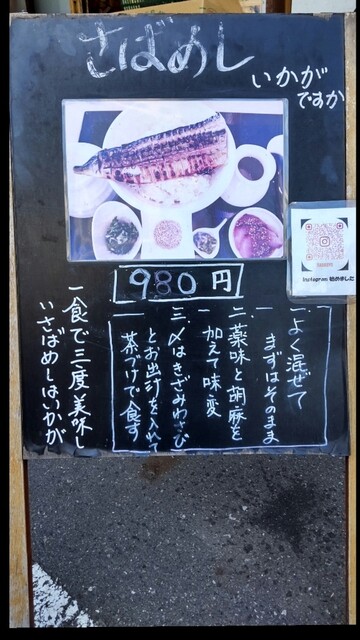 さばめし
いかが
ですか
980円
Instagram 始めました
一よく混ぜて
まずはそのまま
二薬味と胡麻を
加えて味変
三〆はきざみわさび
とお出汁を入れて
茶づけで食す
一食で三度美味し
いさばめしはいかが